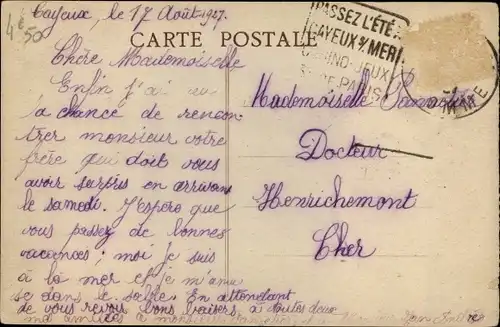 Cayeux, le 17 Août 1927.
4e50
CARTE POSTALE
PASSEZ L'ÉTÉ
CAYEUX s/ MER
CASINO-JEUX
PARIS
Chère Mademoiselle
Enfin j'ai eu
la chance de rencon
trer monsieur votre
frère qui doit vous
avoir surpris en arrivant
le samedi. J'espère que
vous passez de bonnes
vacances; moi je suis
à la mer et je m'amu
se dans le sable. En attendant
de vous revoir bons baisers, à toutes deux
mes amitiés à monsieur
Mademoiselle
Docteur
Henrichemont
Cher